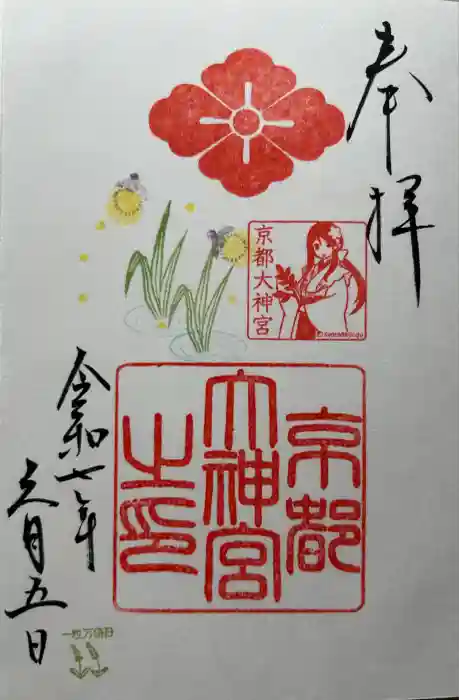 奉拝
京都大神宮
京都
大神宮
之印
令和七年
六月五日
一粒万倍日